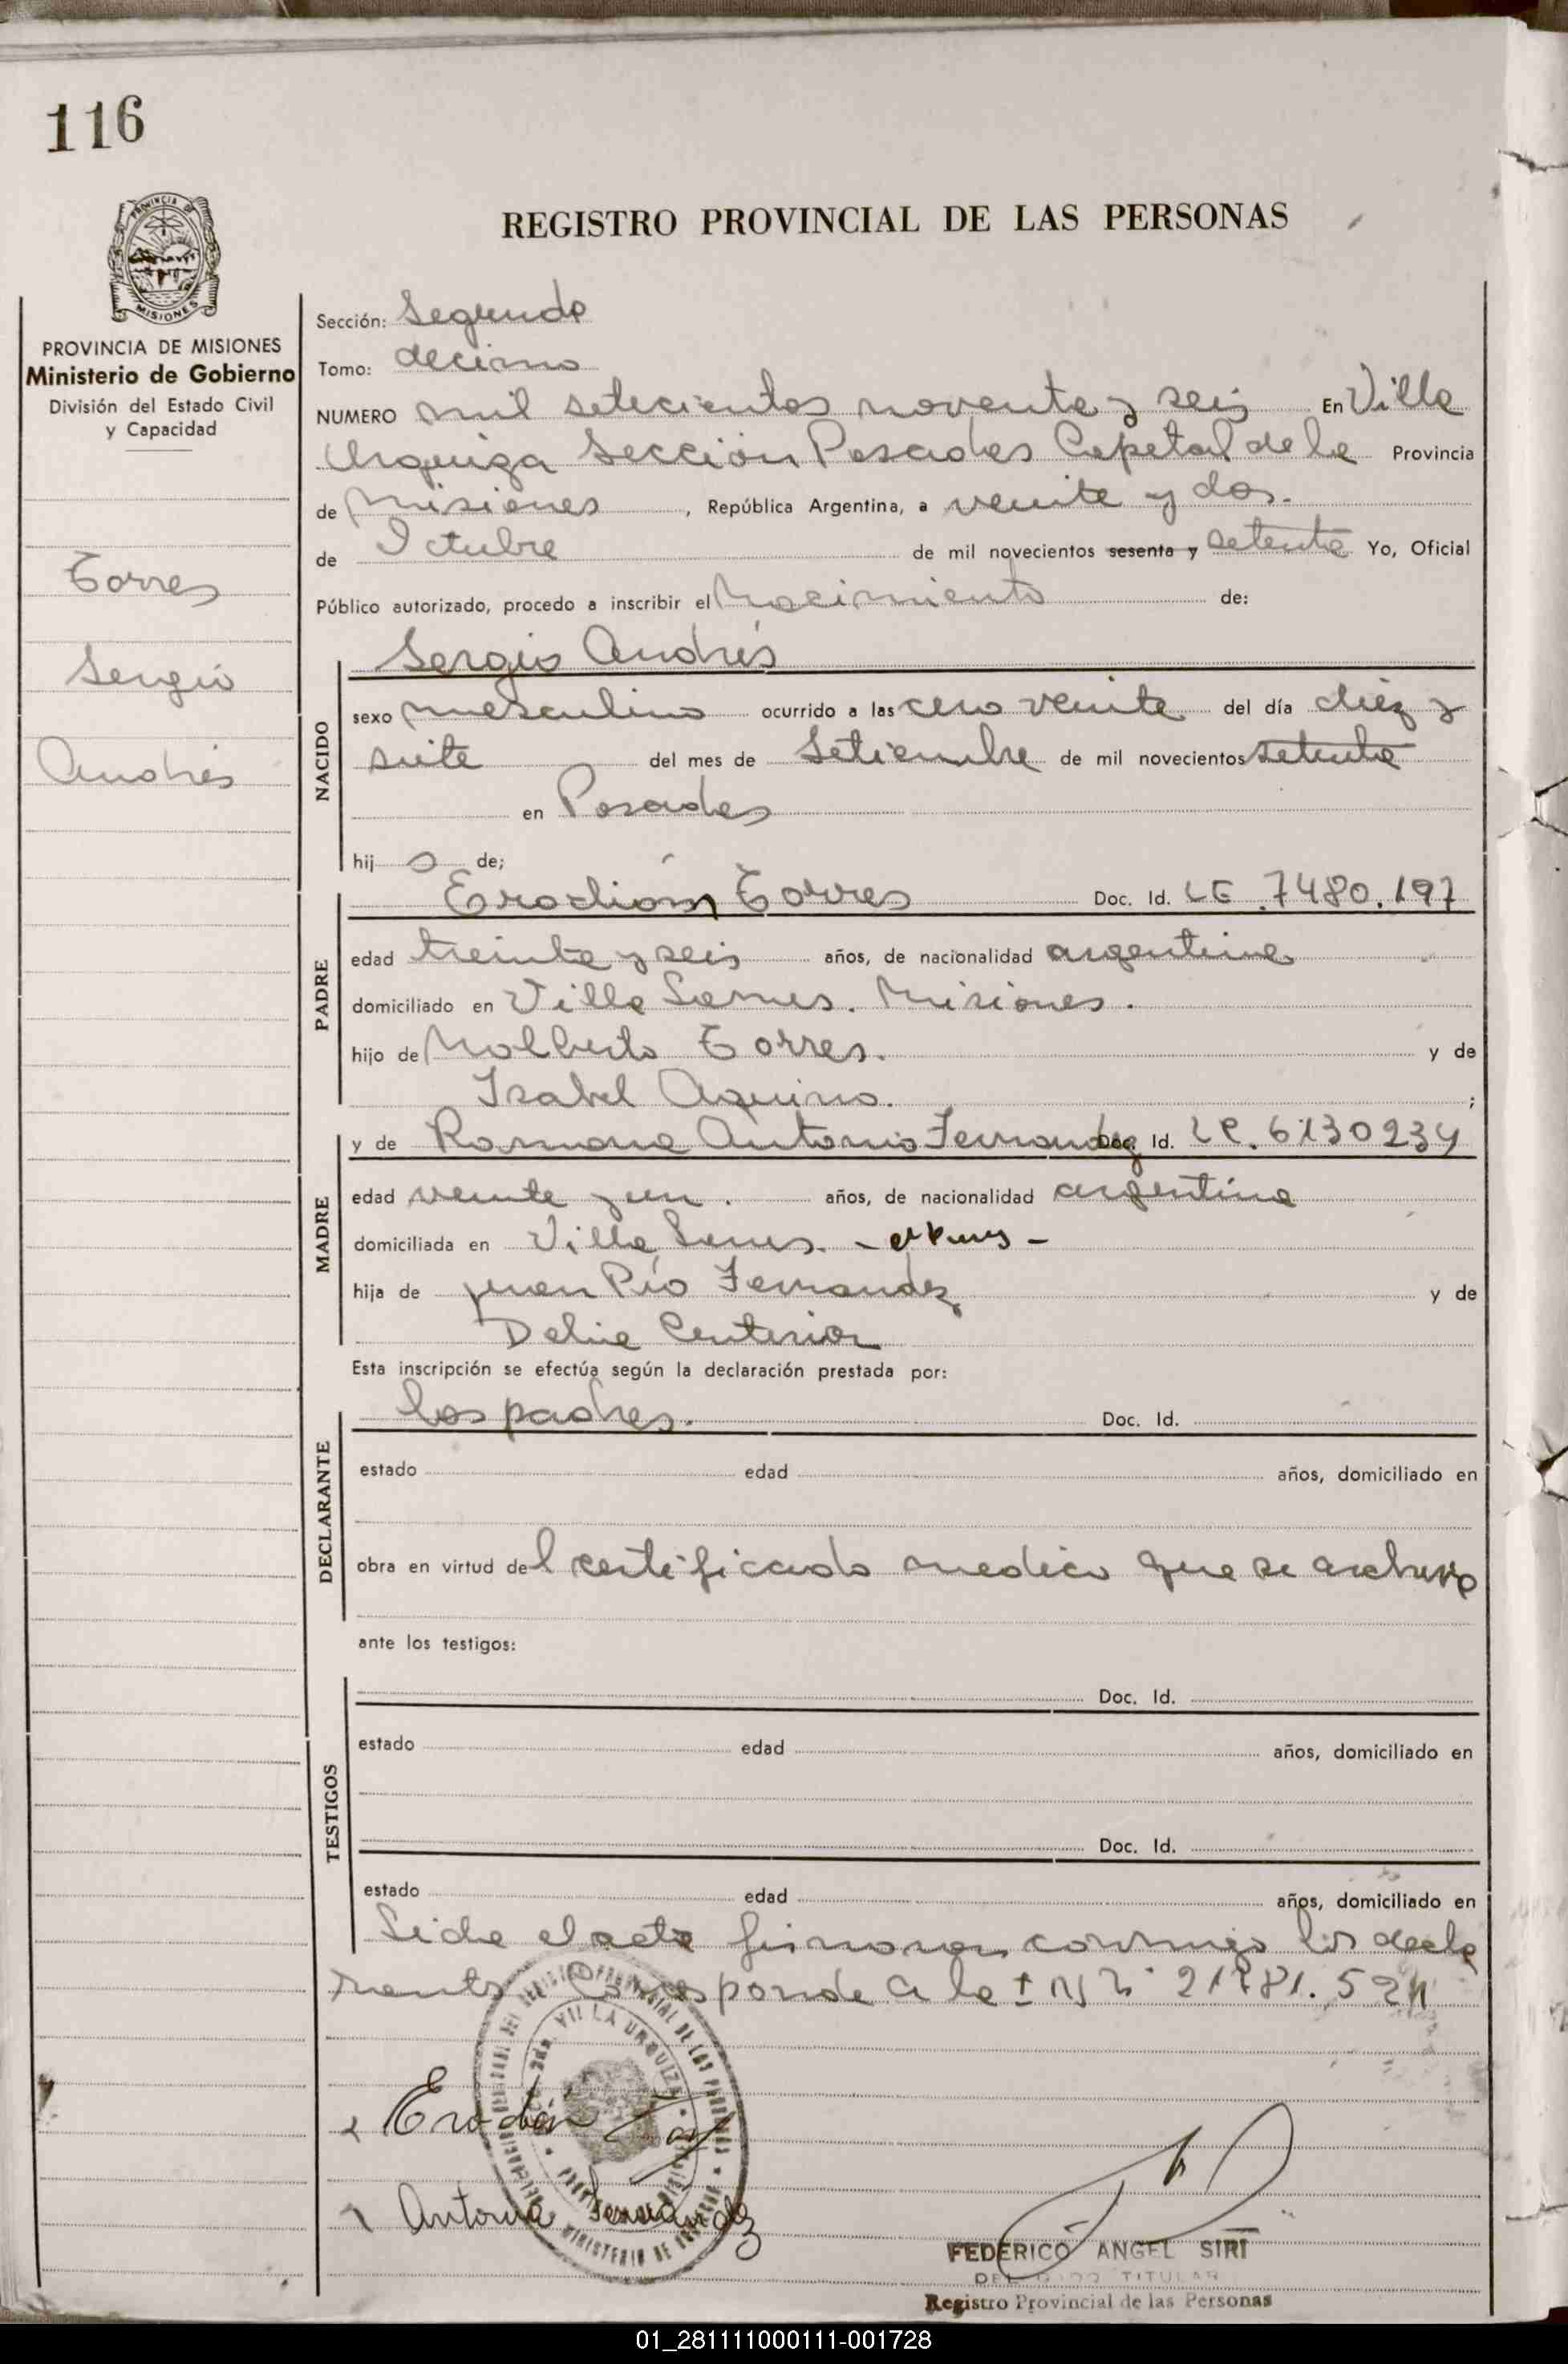 116
REGISTRO PROVINCIAL DE LAS PERSONAS
PROVINCIA DE MISIONES
MISIONES
PROVINCIA DE MISIONES
Ministerio de Gobierno
División del Estado Civil
y Capacidad
Torres
Sergio
Andrés
Sección: Segunda
Tomo: decimo
NUMERO mil setecientos noventa y seis En Villa
Urquiza Sección Posadas Capital de la Provincia
de Misiones , República Argentina, a veinte y dos.
de Octubre de mil novecientos sesenta y setenta Yo, Oficial
Público autorizado, procedo a inscribir el Nacimiento de:
Sergio Andrés
NACIDO
sexo masculino ocurrido a las cero veinte del día diez y
siete del mes de Setiembre de mil novecientos setenta
en Posadas
hij o de;
PADRE
Erodión Torres Doc. Id. LE .7480.197
edad treinta y seis años, de nacionalidad argentina
domiciliado en Villa Lanus. Misiones.
hijo de Nolberto Torres. y de
Isabel Aquino. ;
MADRE
y de Romona Antonia Fernandez Doc. Id. LC. 6130234
edad veinte y un. años, de nacionalidad argentina
domiciliada en Villa Lanus.
hija de Juan Pío Fernandez y de
Delia Centurion
Esta inscripción se efectúa según la declaración prestada por:
DECLARANTE
los padres. Doc. Id.
estado edad años, domiciliado en
obra en virtud del certificado medico que se archiva
ante los testigos:
TESTIGOS
Doc. Id.
estado edad años, domiciliado en
Doc. Id.
estado edad años, domiciliado en
Leida el acta firmaron conmigo los decla
rantes Corresponde a la
Erodión
Antonia Fernandez
FEDERICO ANGEL SIRI
TITULAR
Registro Provincial de las Personas
01_281111000111-001728